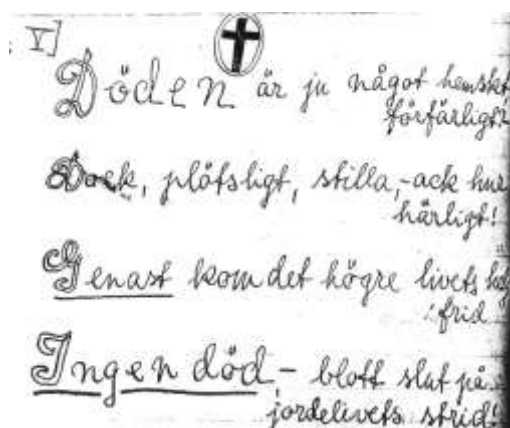 V]
Döden är ju något hemskt
förfärligt?
Dock, plötsligt, stilla, - ack hur
härligt!
Genast kom det högre livets
frid
Ingen död - blott slut på
jordelivets strid!